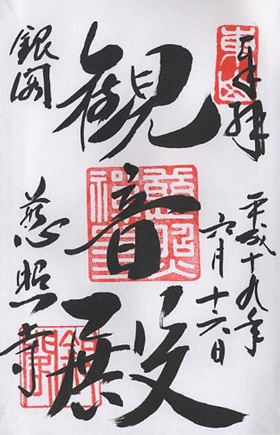 奉拝
平成十九年
六月十六日
観音殿
銀閣
慈照寺